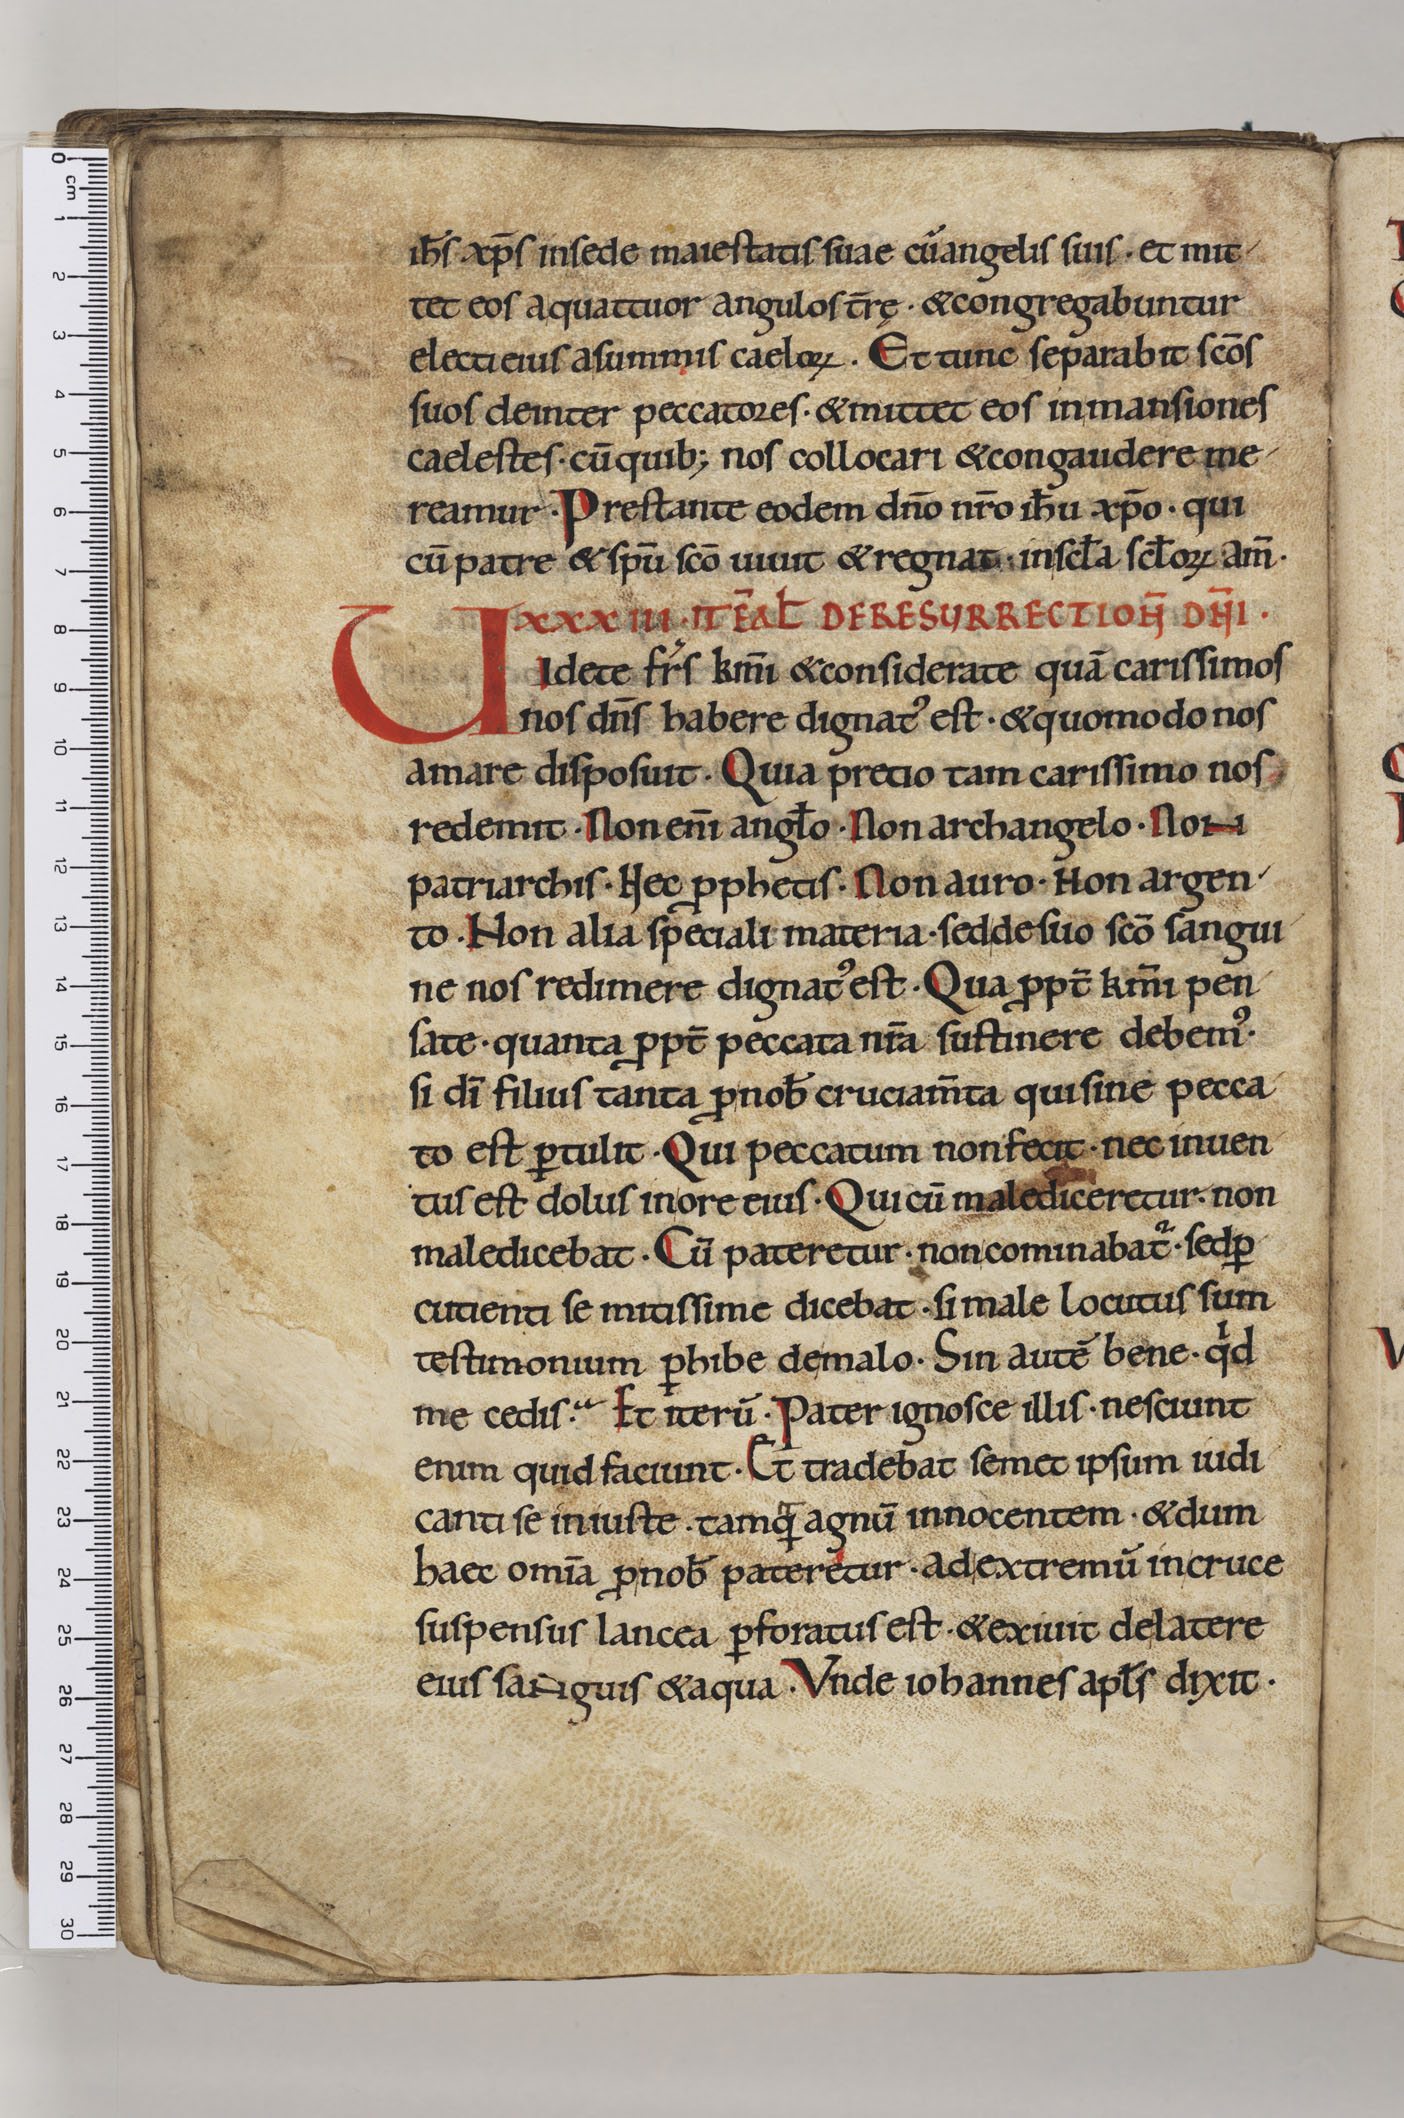 ih̄s xp̄s insede maiestatis suae cū angelis suis · et mit
tet eos aquattuor angulos t̄rę · &congregabuntur
electi eius asummis caeloꝝ . Et tunc separabit sc̄os
suos deinter peccatores · &mittet eos inmansiones
caelestes · cū quib; nos collocari &congaudere me
reamur · Prestante eodem dn̄o nr̄o ih̄u xp̄o · qui
cū patre & sp̄u sc̄o uiuit &regnat · insc̄l̄a sc̄l̄oꝝ am̄ ·
XXXIII · ITĒ AL̄ DERESURRECTION̄ DN̄I ·
UIdete fr̄s km̄i &considerate quā carissimos
nos dn̄s habere dignatꝰ est · &quomodo nos
amare disposuit · Quia precio tam carissimo nos
redemit · Non eni̅ angl̄o · Non archangelo · Non
patriarchis · Nec ꝓphetis · Non auro · Non argen
to · Non alia speciali materia · sed de suo sc̄o sangui
ne nos redimere dignatꝰ est · Qua ꝓpt̄ km̄i pen
sate · quanta ꝓpt̄ peccata nr̄a sustinere debemꝰ ·
si dī filius tanta ꝓ nob̄ cruciam̄ta qui sine pecca
to est ꝑtulit · Qui peccatum non fecit · nec inuen
tus est dolus inore eius · Qui cū malediceretur · non
maledicebat · Cū pateretur · non cominabat᷑ · sed ꝑ
cutienti se mitissime dicebat · si male locutus sum
testimonium ꝑhibe demalo · Sin autē bene · qͥd
me cedis · Et iterū · Pater ignosce illis · nesciunt
enim quid faciunt · Et tradebat semet ipsum iudi
canti se iniuste · tamꝗ̄ agnū innocentem · &dum
haec omīa ꝓ nob̄ pateretur · ad extremū incruce
suspensus lancea ꝑforatus est · &exiuit delatere
eius sanguis &aqua · Vnde iohannes apl̄s dixit ·
0 cm
1
2
3
4
5
6
7
8
9
10
11
12
13
14
15
16
17
18
19
20
21
22
23
24
25
26
27
28
29
30